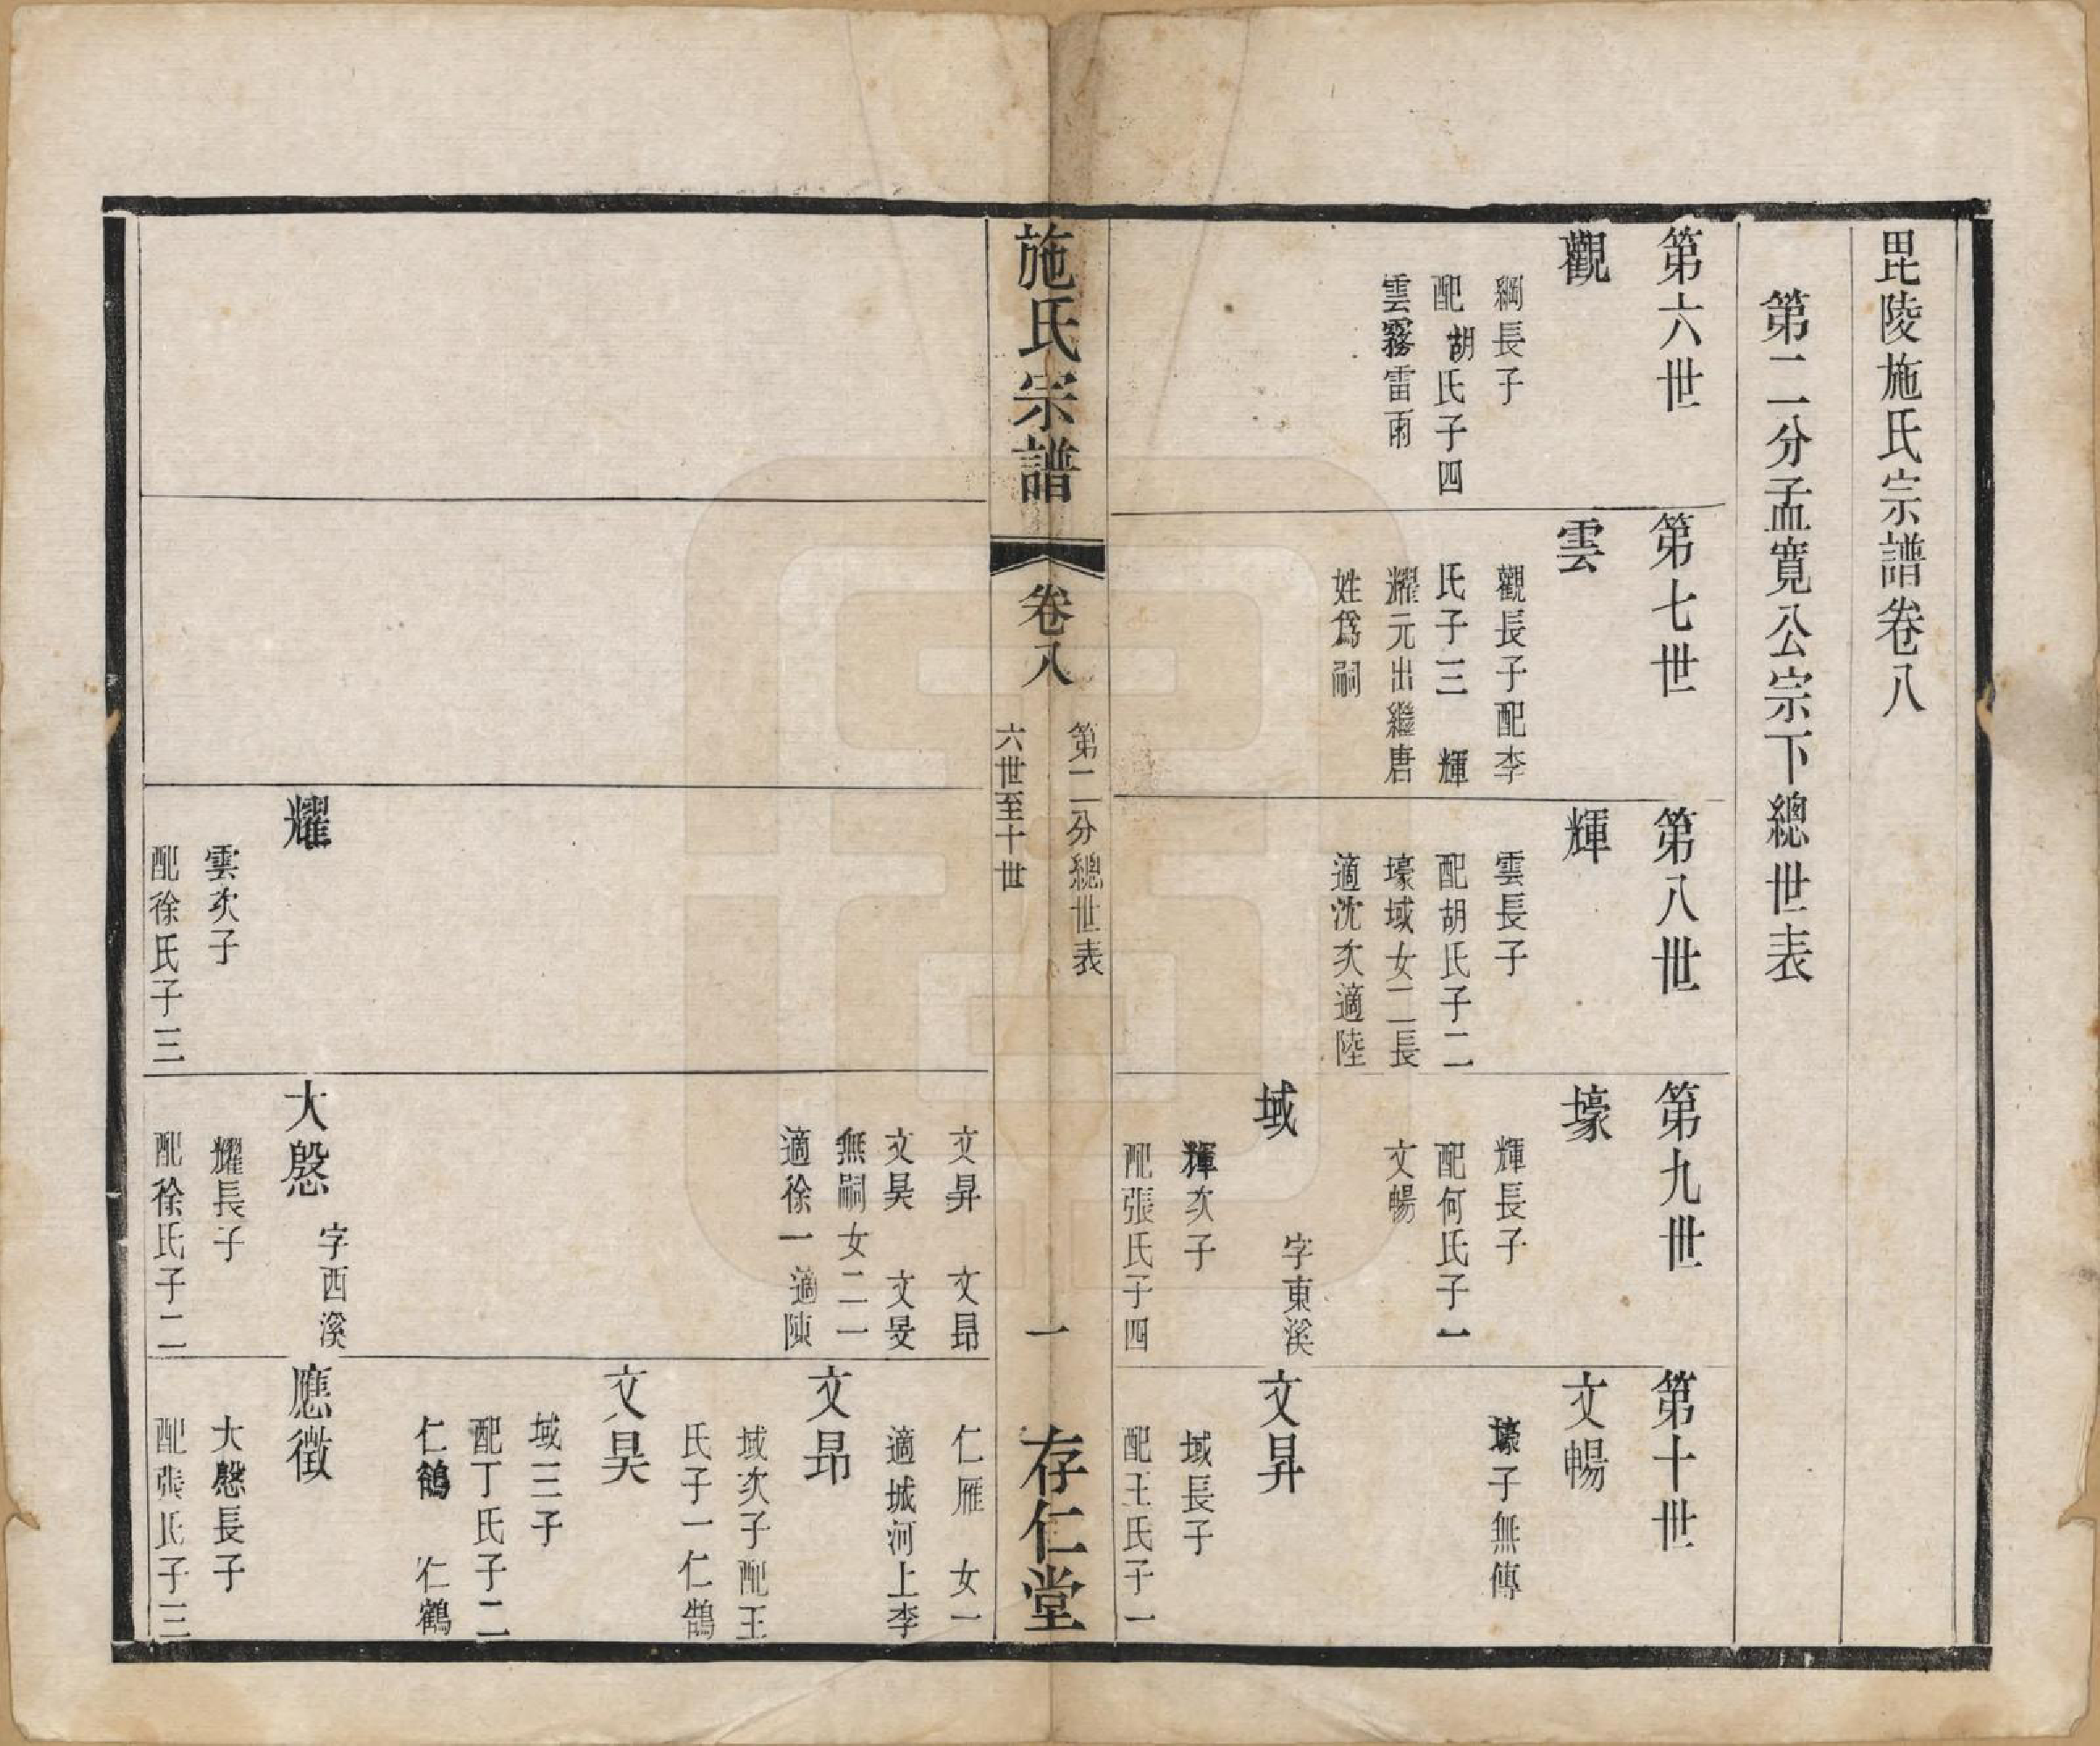 毘陵施氏宗譜卷八
第二分孟寬公宗下總世表
第六世
觀
綱長子
配胡氏子四
雲霧雷雨
第七世
雲
觀長子配李
氏子三 輝
耀元出繼唐
姓爲嗣
第八世
輝
雲長子
配胡氏子二
壕域女二長
適沈次適陸
第九世
壕
輝長子
配何氏子一
文暢
域 字東溪
輝次子
配張氏子四
第十世
文暢
壕子無傳
文昇
域長子
配王氏子一
施氏宗譜
卷八
第二分總世表
六世至十世
一
存仁堂
耀
雲次子
配徐氏子三
文昇 文昻
文昊 文旻
無嗣女二一
適徐一適陳
大慇 字西溪
耀長子
配徐氏子二
仁雁 女一
適城河上李
文昻
域次子配王
氏子一仁鵠
文昊
域三子
配丁氏子二
仁鶴 仁鶴
應徵
大慇長子
配張氏子三